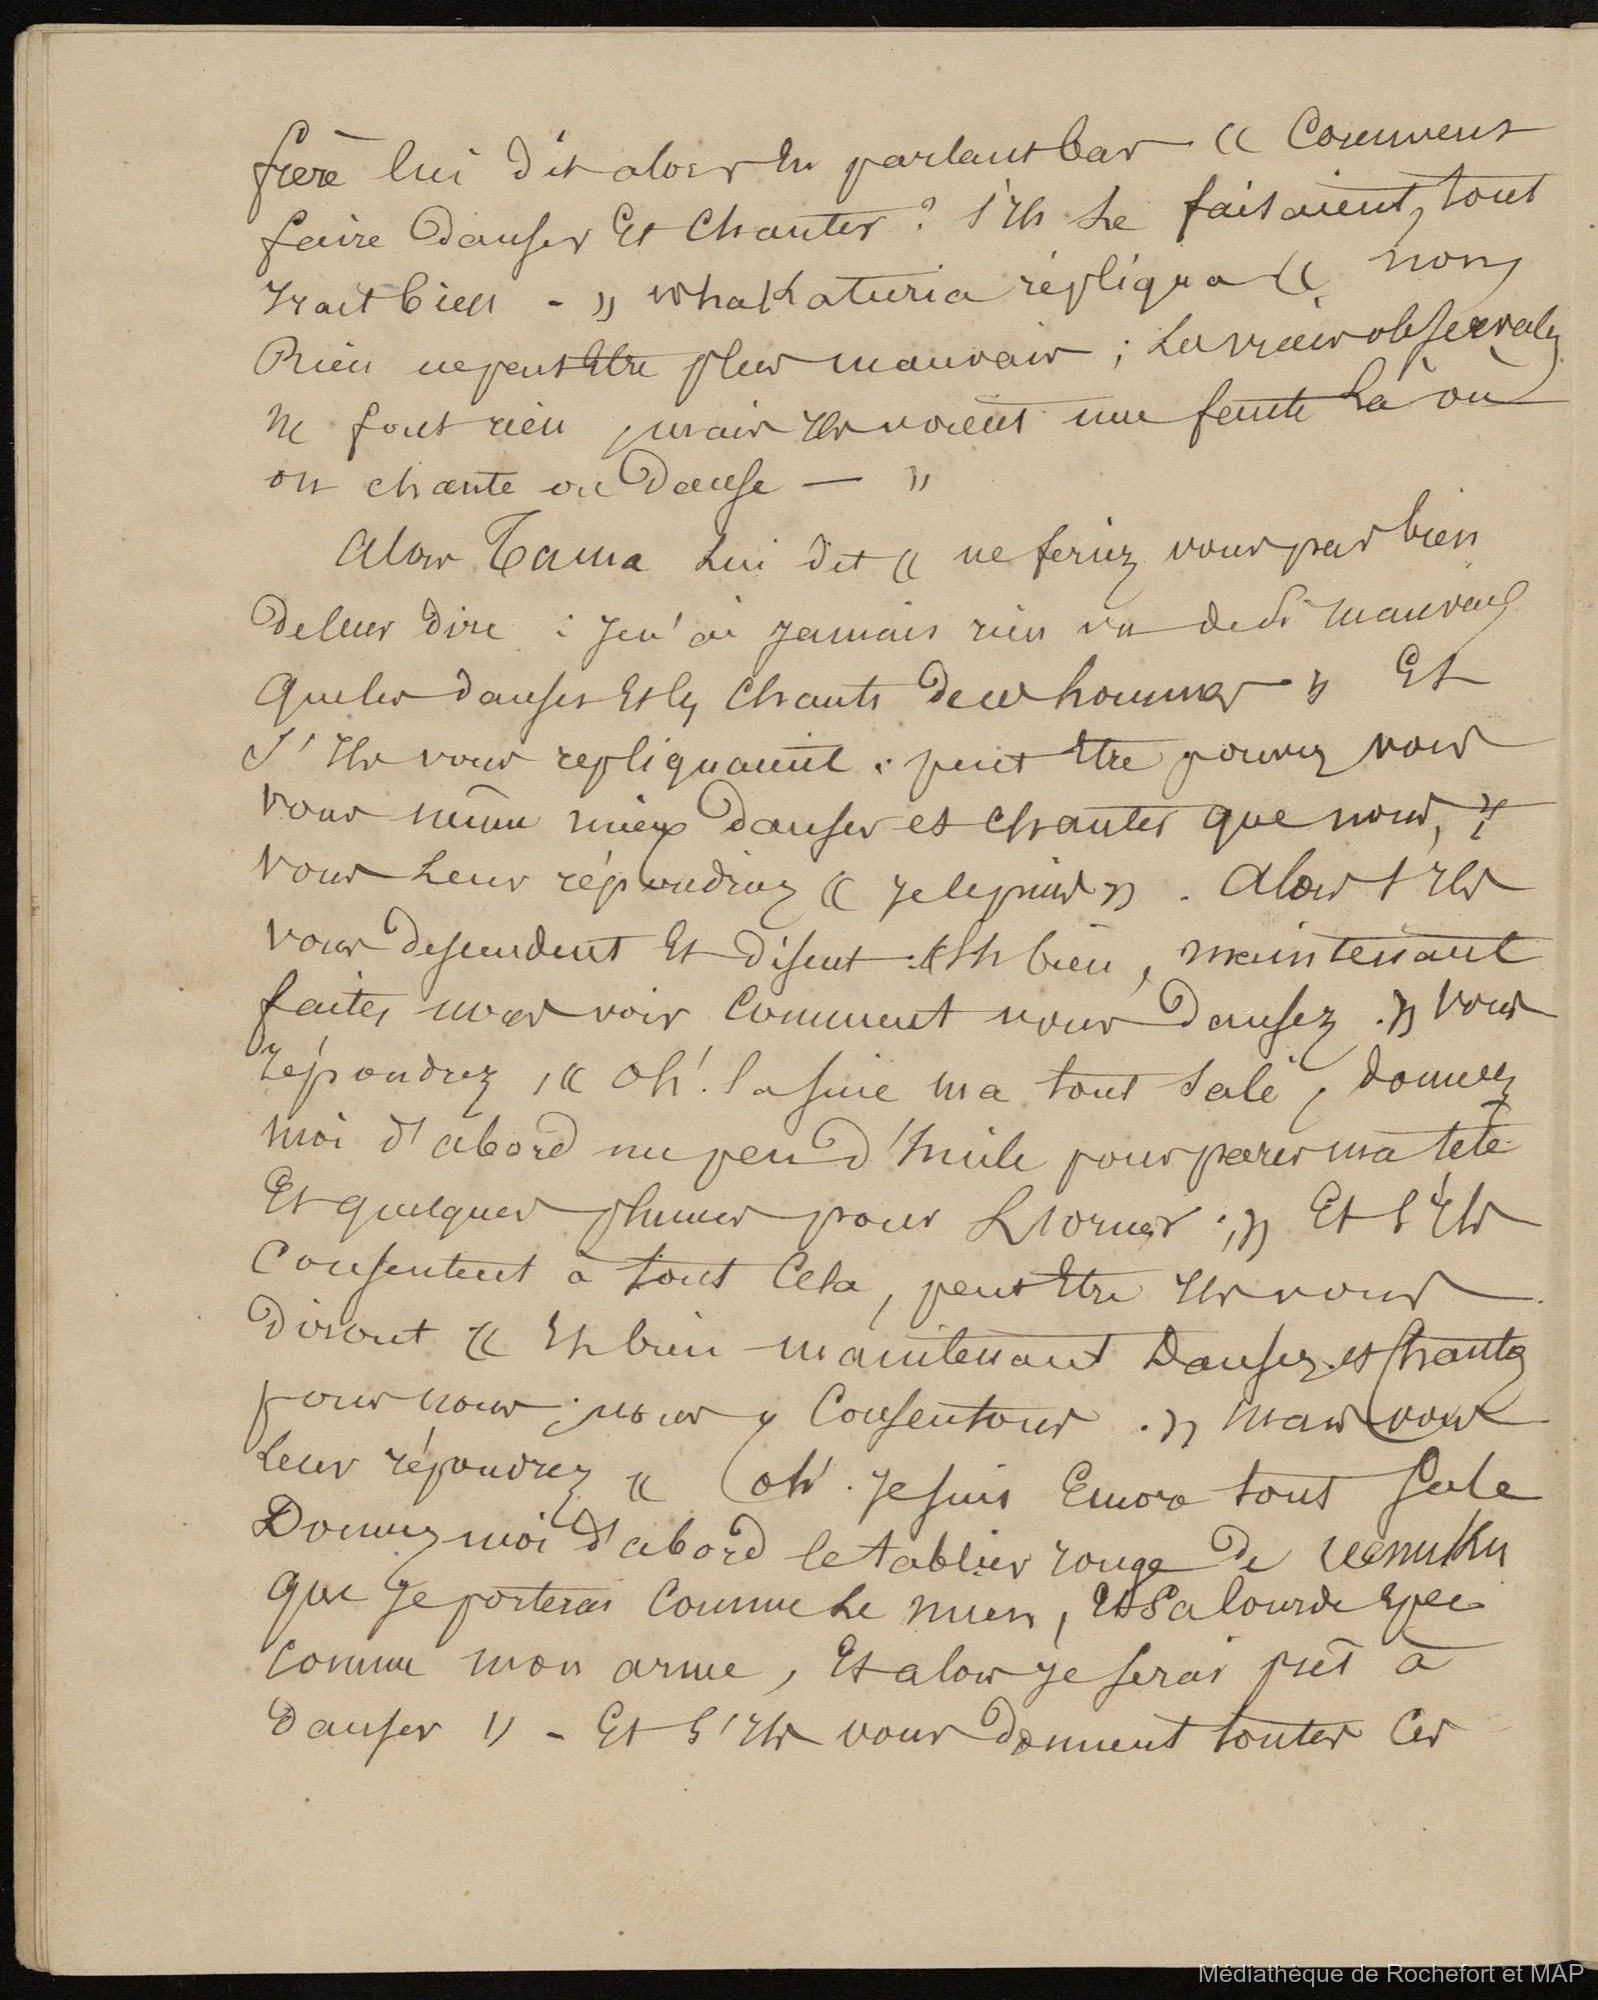 frère lui dit alors en parlant bas « Comment
faire danser Et Chanter ? s'ils Le faisaient, tout
irait bien - » whakaturia répliqua « non,
Rien ne peut Etre plus mauvais ; Les vrais observateurs
ne font rien, mais ils voient une faute Là où
on chante ou Danse — »
Alors Tama Lui dit « ne feriez vous pas bien
De leur dire : Je n'ai jamais rien vu de si mauvais
Que les danses Et les Chants De ces hommes » Et
S'ils vous repliquaient : peut Etre pouvez vous
vous même mieux Danser et chanter que nous, »
vous Leur répondriez « je le puis » . Alors s'ils
vous descendent Et disent : « Eh bien, maintenant
faites nous voir Comment vous Dansez . » Vous
répondrez , « Oh ! la suie m'a tout sali, donnez
moi d'abord un peu d'huile pour parer ma tête
Et quelques plumes pour L'orner . ; » Et s'ils
Consentent à tout Cela, peut Etre ils vous
Diront « Eh bien maintenant Dansez et chantez
pour nous ; nous y Consentons . » Mais vous
Leur répondrez « Oh ! Je suis Encore tout Sale
Donnez moi d'abord le tablier rouge de uenuku
Que Je porterai Comme Le mien, Et Sa lourde Epée
Comme mon arme, Et alors je serai prêt à
Danser » - Et s'ils vous donnent toutes Ces
Médiathèque de Rochefort et MAP